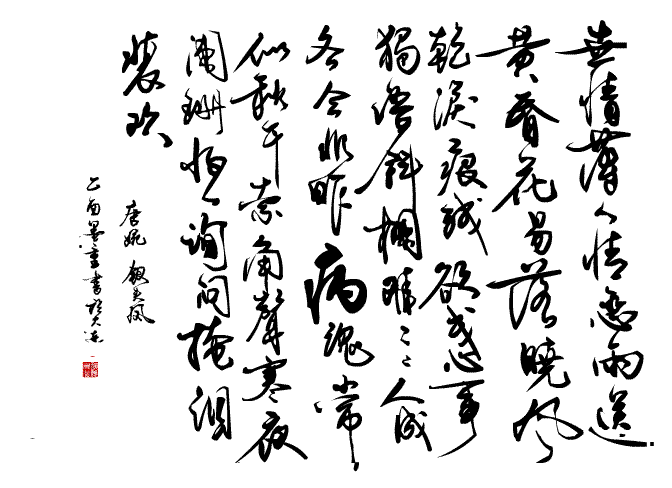 世情薄人情恶雨送
黄昏花易落曉风
乾淚痕残欲笺心事
獨语斜栏难〻〻人成
各今非昨病魂常
似秋千索角聲寒夜
阑珊怕人询问掩泪
装欢
唐婉 钗头凤
乙酉墨童書於大连